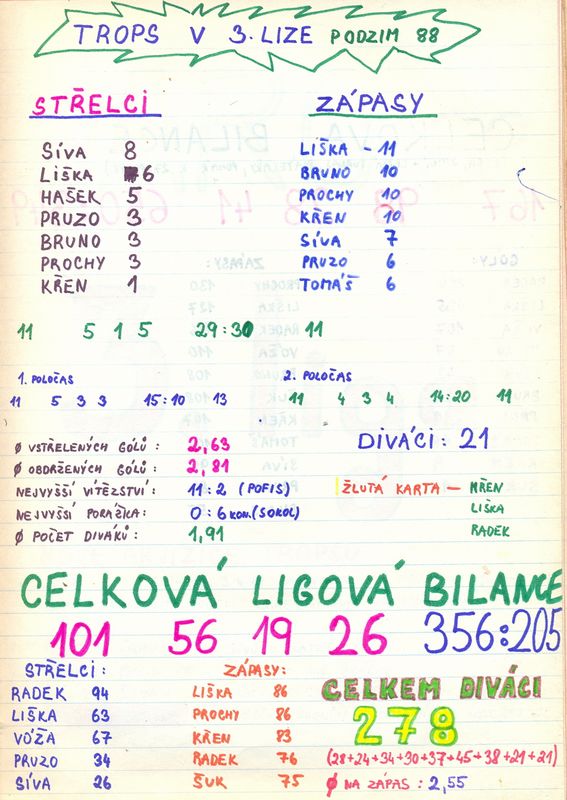 TROPS V 3. LIZE PODZIM 88
STŘELCI
SÍVA 8
LIŠKA 6
HAŠEK 5
PRUZO 3
BRUNO 3
PROCHY 3
KŘEN 1
ZÁPASY
LIŠKA - 11
BRUNO 10
PROCHY 10
KŘEN 10
SÍVA 7
PRUZO 6
TOMÁŠ 6
11 5 1 5 29:30 11
1. POLOČAS
11 5 3 3 15:10 13
2. POLOČAS
11 4 3 4 14:20 11
Ø VSTŘELENÝCH GÓLŮ: 2,63
Ø OBDRŽENÝCH GÓLŮ: 2,81
NEJVYŠŠÍ VÍTĚZSTVÍ: 11:2 (POFIS)
NEJVYŠŠÍ PORÁŽKA: 0:6 KON. (SOKOL)
Ø POČET DIVÁKŮ: 1,91
DIVÁCI: 21
ŽLUTÁ KARTA — KŘEN
LIŠKA
RADEK
CELKOVÁ LIGOVÁ BILANCE
101 56 19 26 356:205
STŘELCI:
RADEK 94
LIŠKA 63
VÓŽA 67
PRUZO 34
SÍVA 26
ZÁPASY:
LIŠKA 86
PROCHY 86
KŘEN 83
RADEK 76
ŠUK 75
CELKEM DIVÁCI
278
(28+24+34+30+37+45+38+21+21)
Ø NA ZÁPAS: 2,55